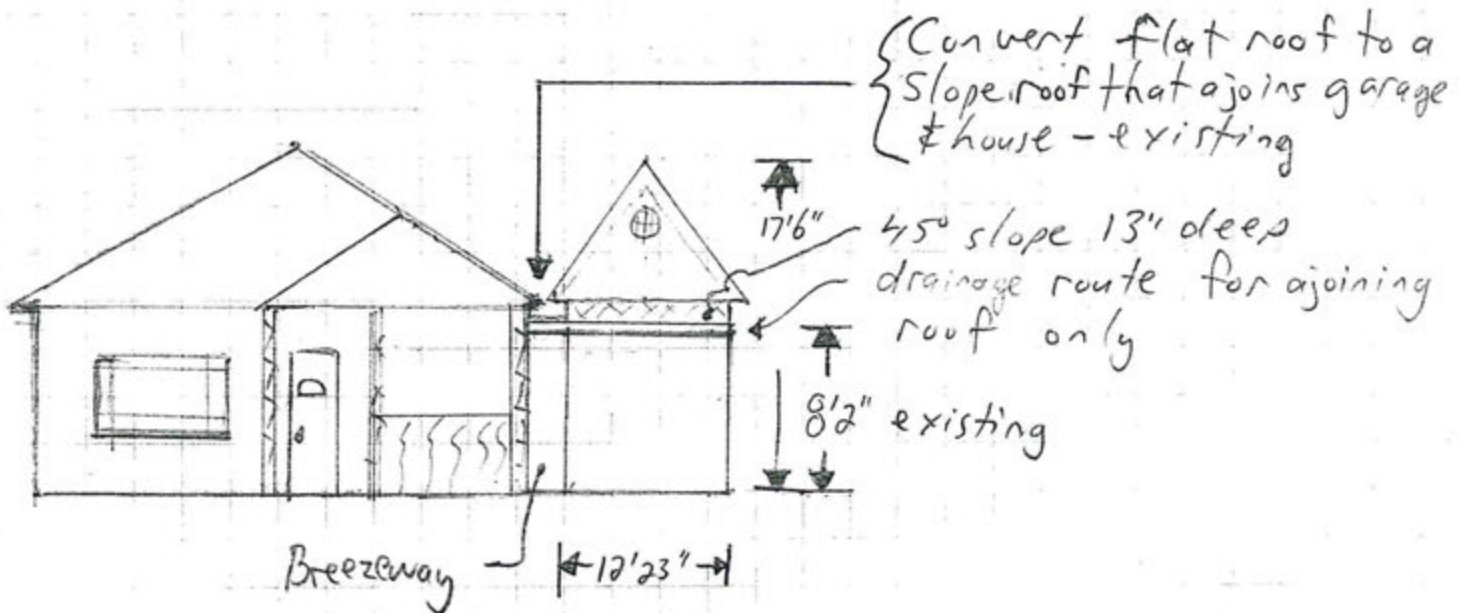 Convert flat roof to a
Slope roof that ajoins garage
& house - existing
17'6"
45° slope 13" deep
drainage route for ajoining
roof only
8'2" existing
Breezeway
12'23"